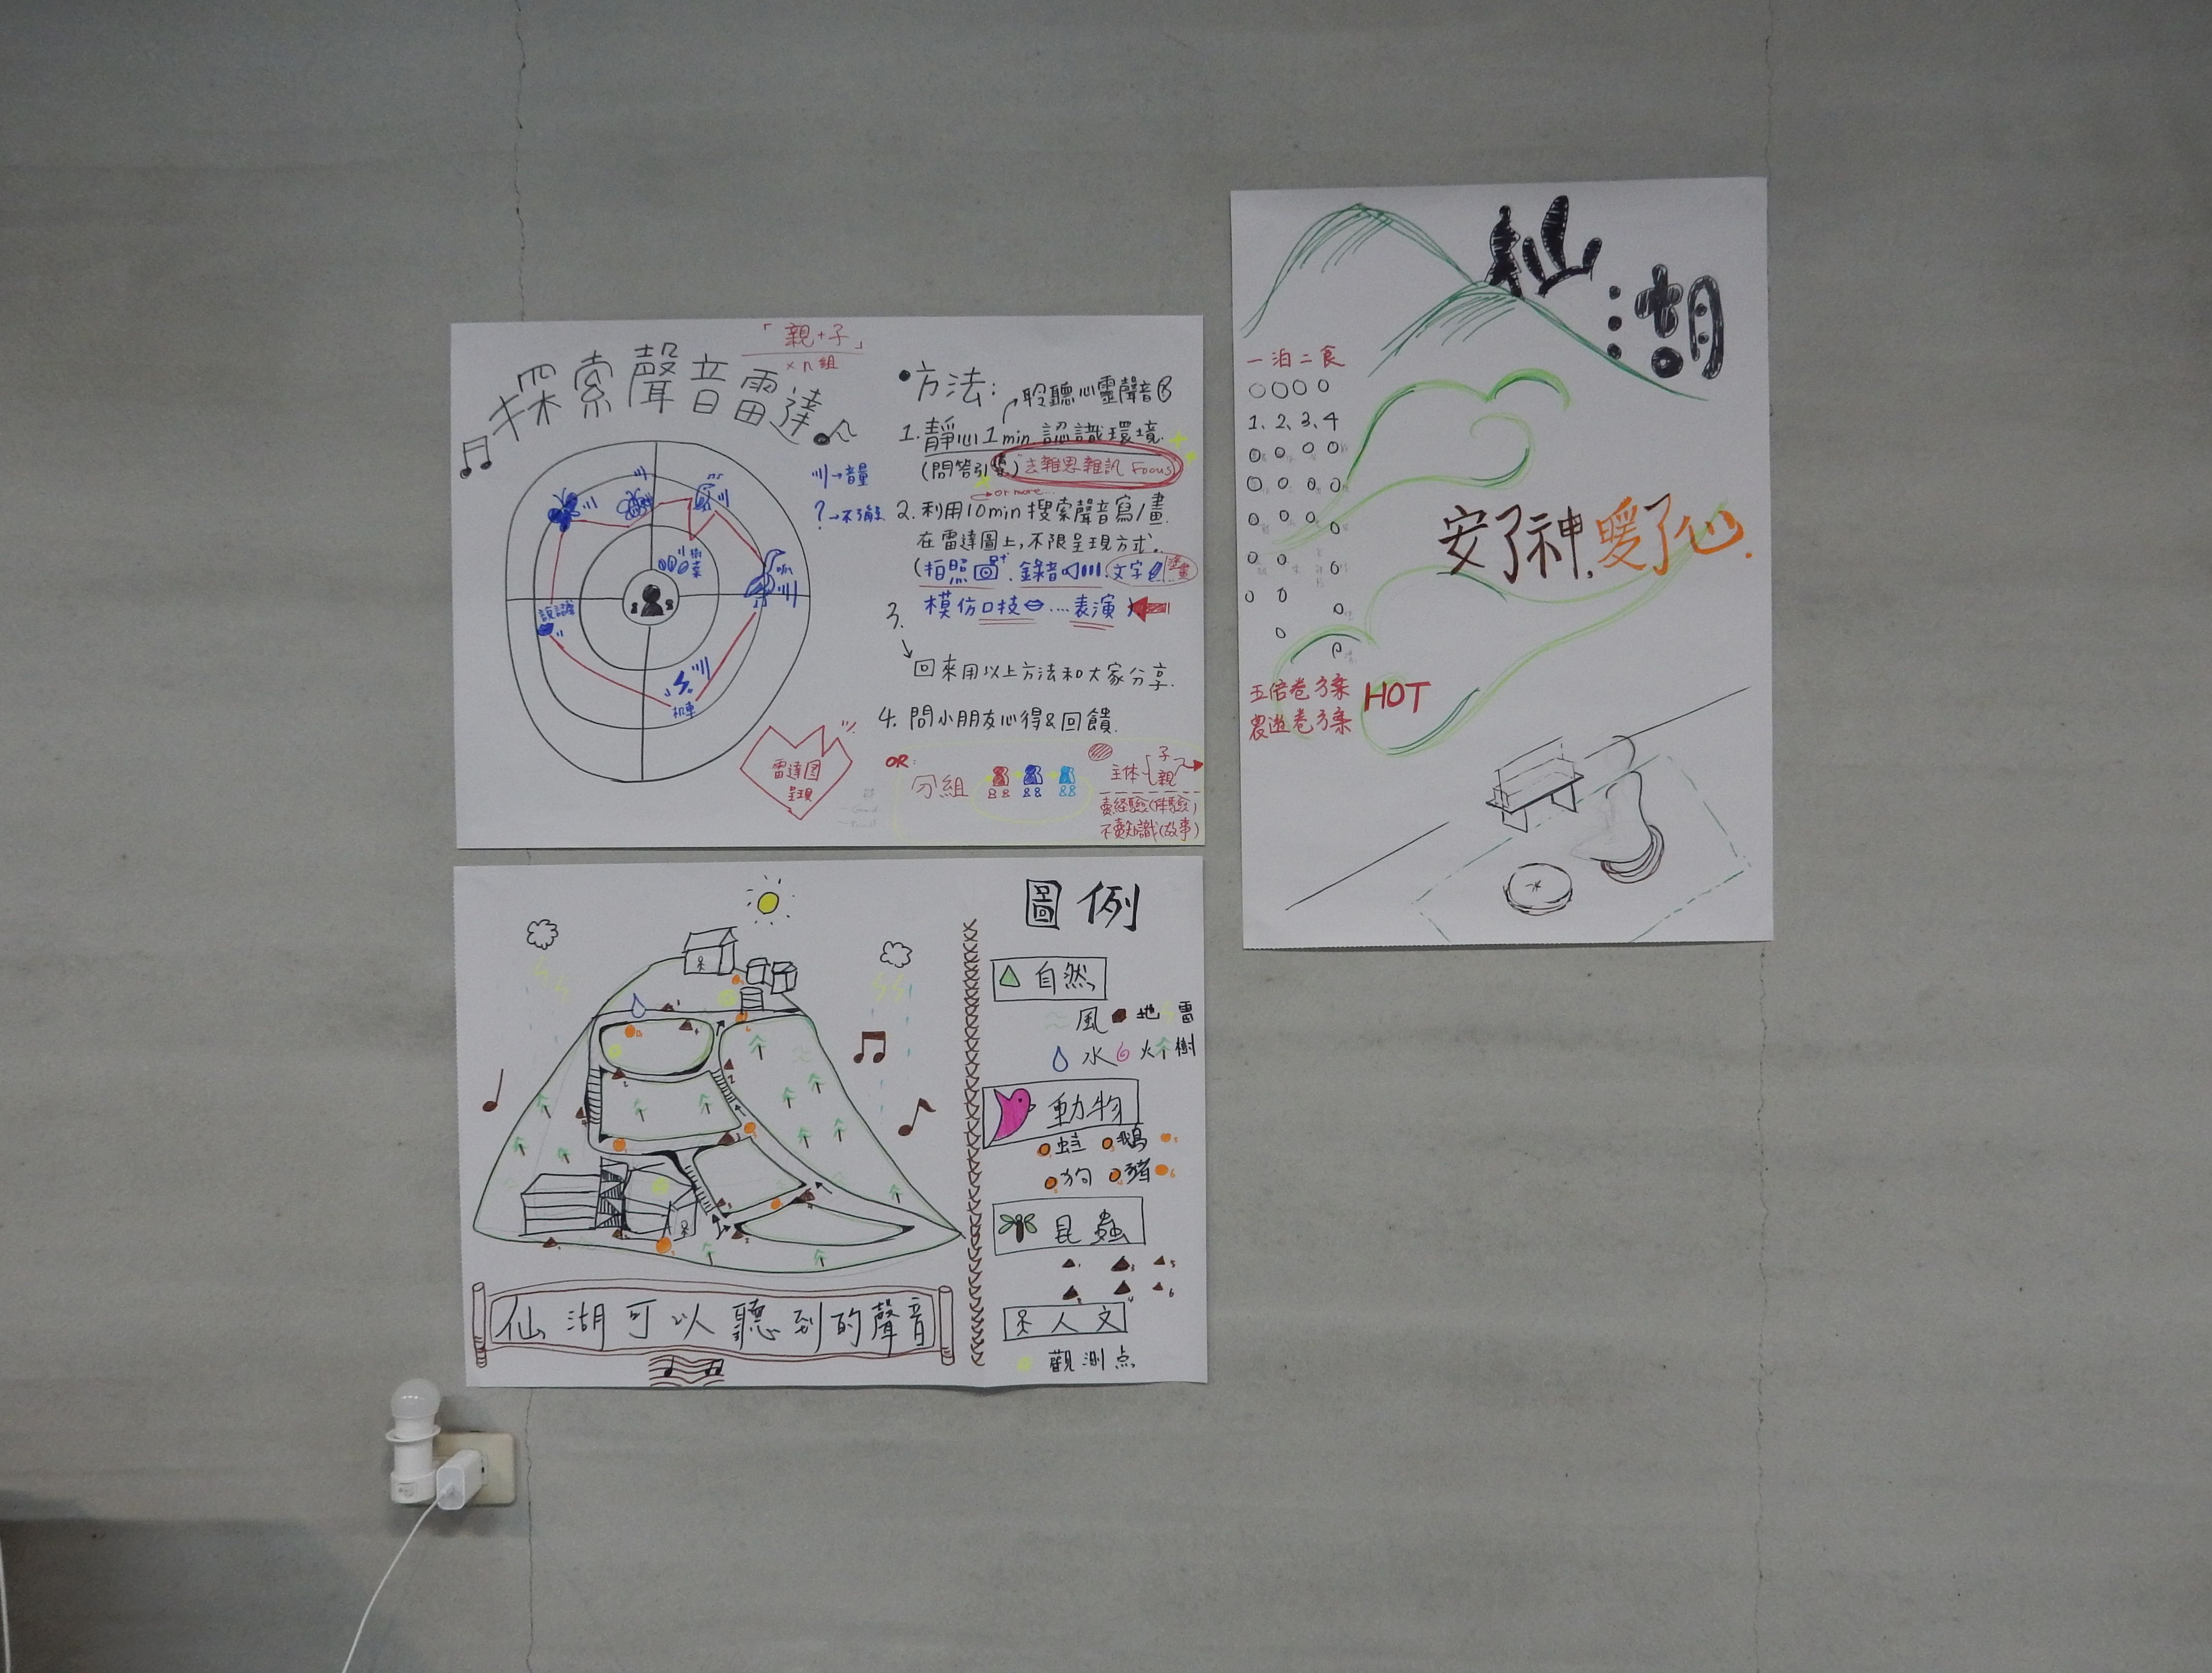 探索聲音雷達
「親+子」
×n組
)))→音量
?→不確定
樹葉
說話聲
机車
雷達图
呈現
•方法:
聆聽心靈聲音
1.靜心1min 認識環境.
(問答引導)去雜思雜訊 Focus
or more...
2.利用10min搜索聲音寫/畫
在雷達圖上,不限呈現方式。
(拍照 錄音 文字 塗畫
3.模仿口技....表演)
回來用以上方法和大家分享.
4.問小朋友心得&回饋.
OR:
分組
主体 子 親
賣經驗(体驗)
不賣知識(故事)
圖例
自然
風 地 雷
水 火 樹
動物
蛙 鵝 5
狗 豬 6
昆蟲
1 3 5
2 4 6
人文
觀測点
仙湖可以聽到的聲音
仙湖
一泊二食
1、2、3、4
安了神,暖了心.
五倍卷方案
農遊卷方案
HOT